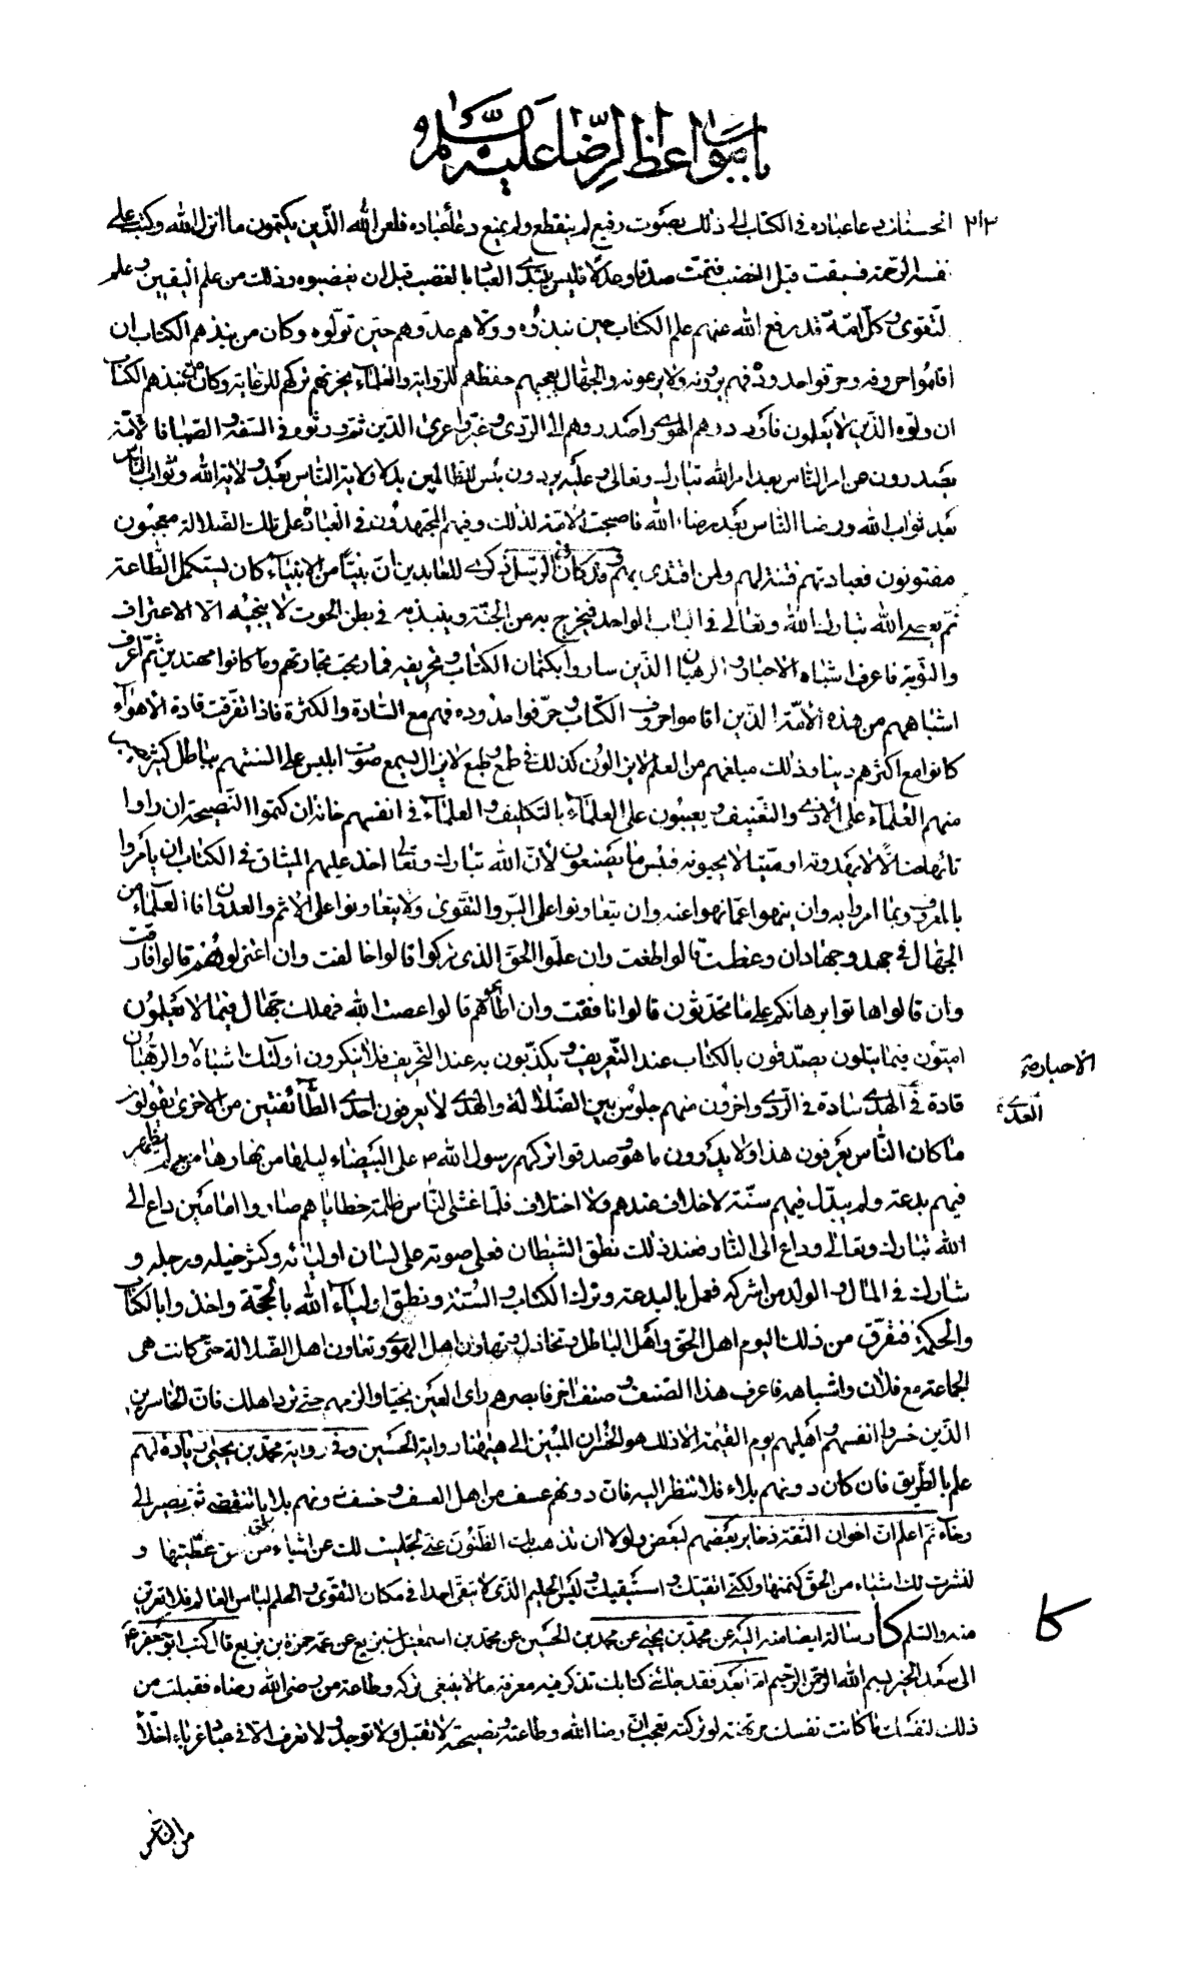 باب مواعظ الرضا عليه السلم
٢١٣ الحسنات دعا عباده في الكتاب الى ذلك بصوت رفيع لم ينقطع ولم يمنع دعاء عباده فلعن الله الذين يكتمون ما انزل الله وكتب على
نفسه الرحمة فسبقت قبل الغضب فتمت صدقا وعدلا فليس يبتدى العباد بالغضب قبل ان يغضبوه وذلك من علم اليقين وعلم
لتقوى وكل امة قد رفع الله عنهم علم الكتاب حين نبذوه وولاهم عدوهم حين تولوه وكان من نبذهم الكتاب ان
اقاموا حروفه وحرفوا حدوده فهم يروونه ولا يرعونه والجهال يعجبهم حفظهم للرواية والعلماء يحزنهم تركهم للرعاية وكان من نبذهم الكتاب
ان ولوه الذين لا يعلمون فاوردوهم الهوى واصدروهم الى الردى وغيروا عرى الدين ثم ورثوه في السفه والصبا فالامة
يصدرون عن امر الناس بعد امر الله تبارك وتعالى وعليه يردون بئس للظالمين بدلا ولاية الناس بعد ولاية الله وثواب الناس
بعد ثواب الله ورضا الناس بعد رضاء الله فاصبحت الامة لذلك وفيهم المجتهدون في العبادة على تلك الضلالة معجبون
مفتونون فعبادتهم فتنة لهم ولمن اقتدى بهم وقد كان في الرسل ذكرى للعابدين ان نبيا من الانبياء كان يستكمل الطاعة
ثم يعصى الله تبارك الله وتعالى في الباب الواحد فيخرج به من الجنة وينبذ به في بطن الحوت لا ينجيه الا الاعتراف
والتوبة فاعرف اشباه الاحبار والرهبان الذين ساروا بكتمان الكتاب وتحريفه فما ربحت تجارتهم وما كانوا مهتدين ثم اعرف
اشباههم من هذه الامة الذين اقاموا حروف الكتاب وحرفوا حدوده فهم مع السادة والكثرة فاذا تفرقت قادة الاهواء
كانوا مع اكثرهم دينا وذلك مبلغهم من العلم لا يزالون كذلك في طمع وطبع لا يزال يسمع صوت ابليس على السنتهم بباطل كثير يصبر
منهم العلماء على الاذى والتعنيف ويعيبون على العلماء بالتكليف والعلماء في انفسهم خانة ان كتموا النصيحة ان راوا
تائها ضالا لا يهدونه او ميتا لا يحيونه فبئس ما يصنعون لان الله تبارك وتعالى اخذ عليهم الميثاق في الكتاب ان يامروا
بالمعروف وبما امروا به وان ينهوا عما نهوا عنه وان يتعاونوا على البر والتقوى ولا يتعاونوا على الاثم والعدوان فالعلماء من
الجهال في جهد وجهاد ان وعظت قالوا طغت وان علموا الحق الذى تركوا قالوا خالفت وان اعتزلوهم قالوا فارقت
وان قالوا هاتوا برهانكم على ما تحدثون قالوا نافقت وان اطاعوهم قالوا عصت الله فهلك جهال فيما لا يعلمون
اميون فيما يتلون يصدقون بالكتاب عند التعريف ويكذبون به عند التحريف فلا ينكرون اولئك اشباه والرهبان
الاحبار صح
قادة في الهدى سادة في الردى واخرون منهم جلوس بين الضلالة والهدى لا يعرفون احدى الطائفتين من الاخرى يقولون
ما كان الناس يعرفون هذا ولا يدرون ما هو وصدقوا تركهم رسول الله ص على البيضاء ليلها من نهارها لم يظهر
فيهم بدعة ولم يبدل فيهم سنة لا خلاف عندهم ولا اختلاف فلما غشى الناس ظلمة خطاياهم صاروا امامين داع الى
الله تبارك وتعالى وداع الى النار فعند ذلك نطق الشيطان فعلى صوته على لسان اوليائه وكثر خيله ورجله و
شارك في المال والولد من اشركه فعمل بالبدعة وترك الكتاب والسنة ونطق اولياء الله بالحجة واخذوا بالكتاب
والحكمة فتفرق من ذلك اليوم اهل الحق واهل الباطل وتخاذل وتهاون اهل الهوى وتعاون اهل الضلالة حتى كانت هى
الجماعة مع فلان واشباهه فاعرف هذا الصنف وصنف اخر فابصرهم راى العين نجيا والزمهم حتى ترد اهلك فان الخاسرين
الذين خسروا انفسهم واهليهم يوم القيمة الا ذلك هو الخسران المبين الى ههنا رواية الحسين وفي رواية محمد بن يحيى زيادة لهم
علم بالطريق فان كان دونهم بلاء فلا تنظر اليه فان دونهم عسف من اهل العسف وخسف ودونهم بلايا تنقضى ثم تصير الى
رخاء ثم اعلم ان اخوان الثقة ذخاير بعضهم لبعض ولولا ان تذهب بك الظنون عنى لجليت لك عن اشياء من الحق غطيتها و
لنشرت لك اشياء من الحق كتمتها ولكنى اتقيك واستبقيك وليس الحليم الذى لا يتقى احدا في مكان التقوى والحلم لباس العالم فلا تعرين
منه والسلم كا رسالة ايضا منه اليه عن محمد بن يحيى عن محمد بن الحسين عن محمد بن اسمعيل بن بزيع عن عمه حمزة بن بزيع قال كتب ابو جعفر ع
كا
الى سعد الخير بسم الله الرحمن الرحيم اما بعد فقد جاءنى كتابك تذكر فيه معرفة ما لا ينبغى تركه وطاعة من رضى الله رضاه فقبلت من
ذلك لنفسك ما كانت نفسك مرتهنة لو تركته تعجب ان رضا الله وطاعته ونصيحته لا تقبل ولا توجد ولا تعرف الا في عباد غرباء اخلاء
من الناس